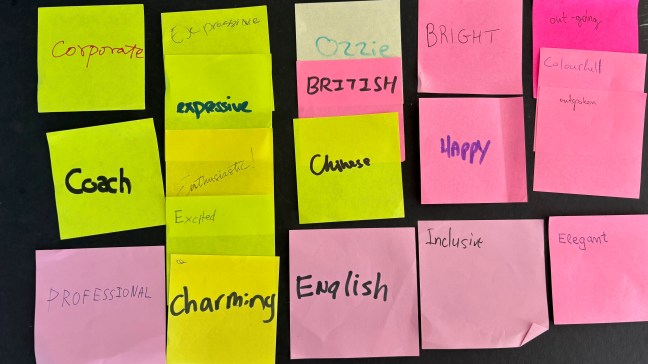 Corporate
Coach
PROFESSIONAL
Expressive
expressive
Enthusiastic!
Excited
Charming
Ozzie
BRITISH
Chinese
English
BRIGHT
HAPPY
Inclusive
out-going
Colourfull
Elegant